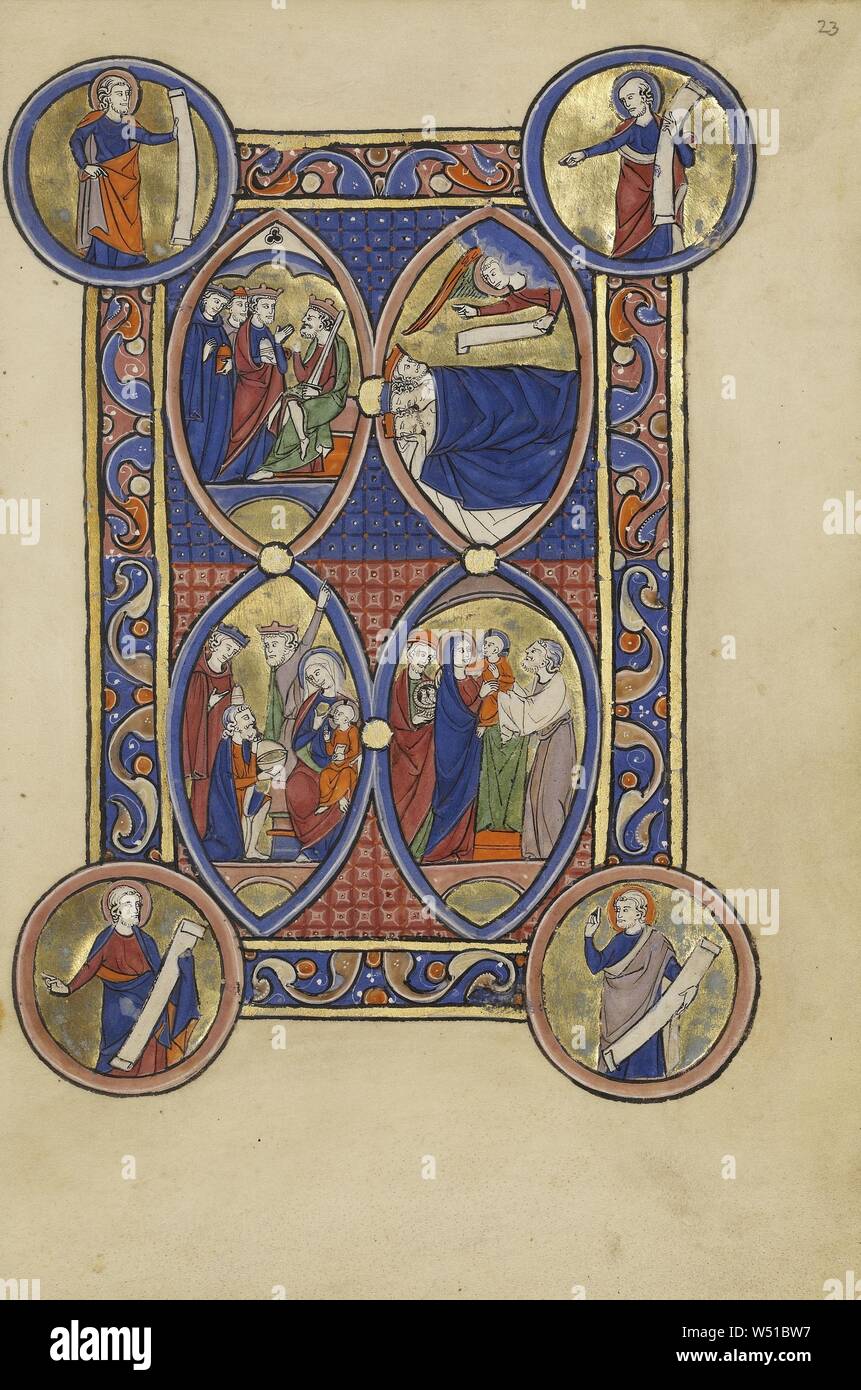 23
alamy
Image ID: W51BW7
www.alamy.com